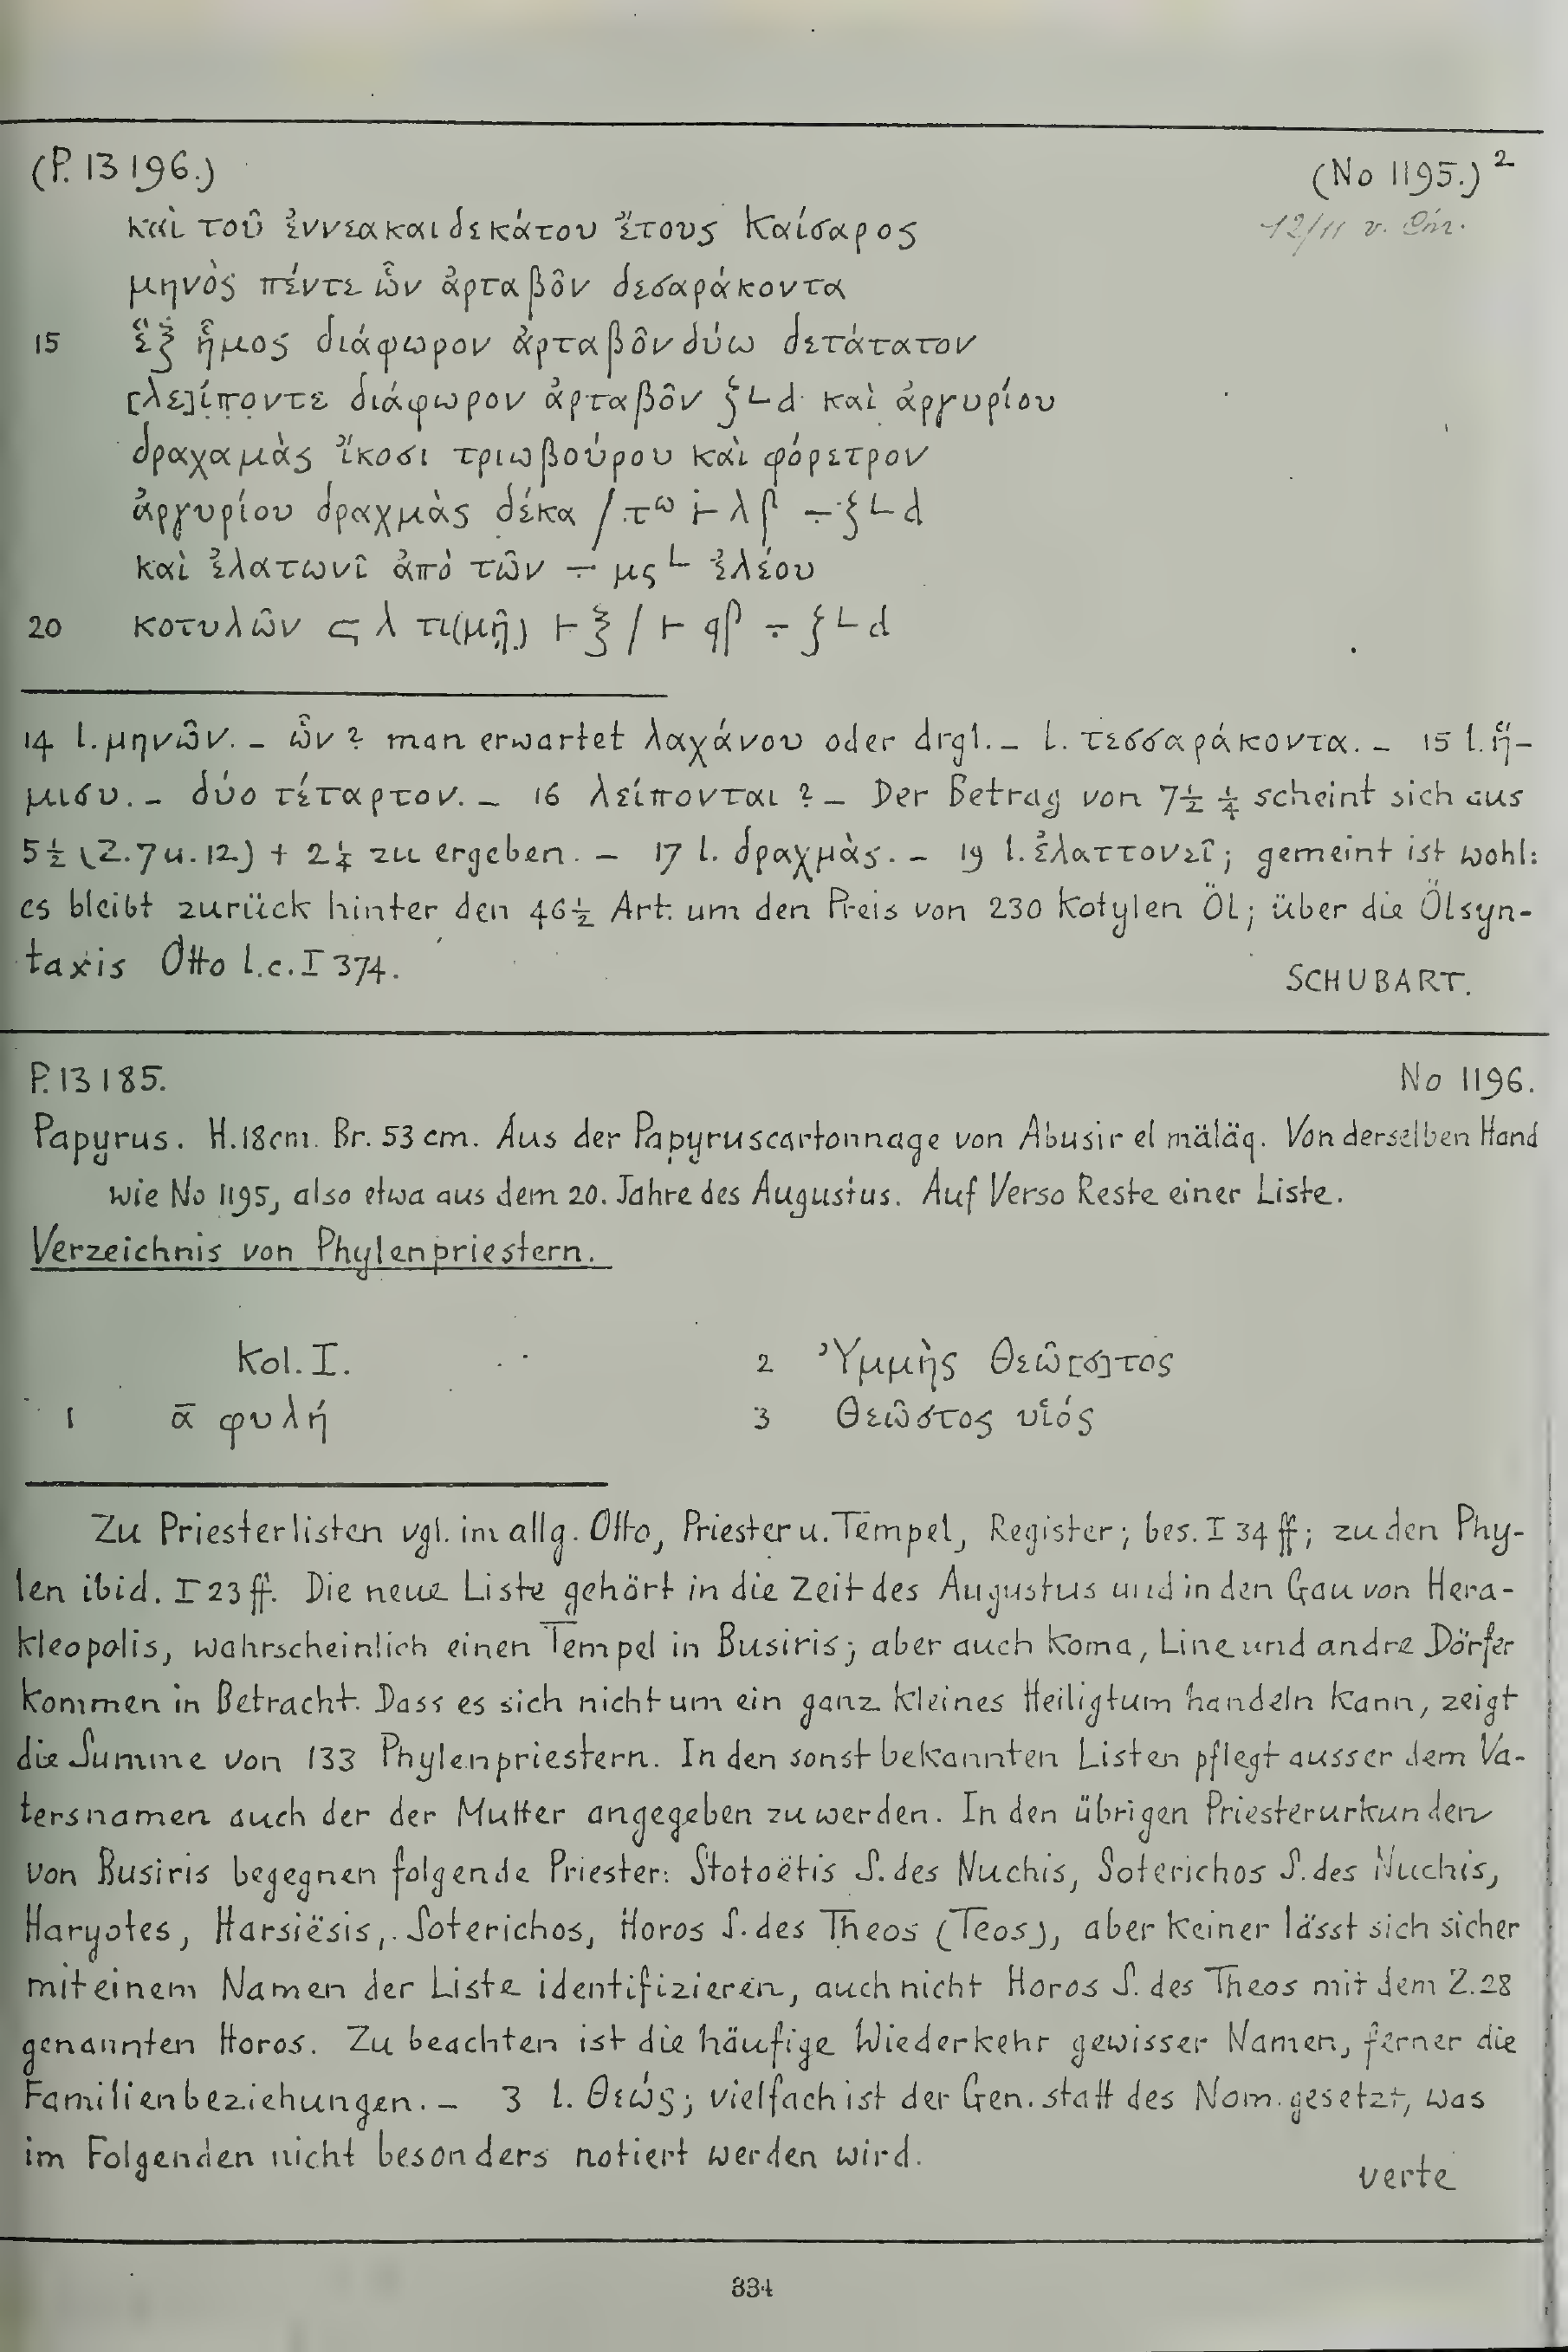 (P. 13196.) (No 1195.)²
καὶ τοῦ ἐννεακαιδεκάτου ἔτους Καίσαρος 12/11 v.
μηνὸς πέντε ὧν ἀρταβῶν δεσαράκοντα
15 ἓξ ἥμος διάφωρον ἀρταβῶν δύω δετάτατον
[λε]ίποντε διάφωρον ἀρταβῶν ζ𐅵d καὶ ἀργυρίου
δραχαμὰς ἴκοσι τριωβούρου καὶ φόρετρον
ἀργυρίου δραχμὰς δέκα / τω ⊢ λβ ÷ ζ𐅵d
καὶ ἐλατωνῖ ἀπὸ τῶν ÷ μς𐅵 ἐλέου
20 κοτυλῶν ϛ λ τι(μὴ) ⊢ ξ / ⊢ qβ ÷ ζ𐅵d
14 l. μηνῶν. – ὧν? man erwartet λαχάνου oder drgl. – l. τεσσαράκοντα. – 15 l. ἥ-
μισυ. – δύο τέταρτον. – 16 λείπονται? – Der Betrag von 7½ ¼ scheint sich aus
5½ (Z. 7 u. 12) + 2¼ zu ergeben. – 17 l. δραχμὰς. – 19 l. ἐλαττονεῖ; gemeint ist wohl:
es bleibt zurück hinter den 46½ Art. um den Preis von 230 Kotylen Öl; über die Ölsyn-
taxis Otto l.c. I 374. SCHUBART.
P. 13185. No 1196.
Papyrus. H. 18 cm. Br. 53 cm. Aus der Papyruscartonnage von Abusir el mäläq. Von derselben Hand
wie No 1195, also etwa aus dem 20. Jahre des Augustus. Auf Verso Reste einer Liste.
Verzeichnis von Phylenpriestern.
Kol. I.
1 ᾱ φυλή
2 Ὑμμὴς Θεῶ[σ]τος
3 Θεῶστος υἱός
Zu Priesterlisten vgl. im allg. Otto, Priester u. Tempel, Register; bes. I 34 ff; zu den Phy-
len ibid. I 23 ff. Die neue Liste gehört in die Zeit des Augustus und in den Gau von Hera-
kleopolis, wahrscheinlich einen Tempel in Busiris; aber auch Koma, Line und andre Dörfer
kommen in Betracht. Dass es sich nicht um ein ganz kleines Heiligtum handeln kann, zeigt
die Summe von 133 Phylenpriestern. In den sonst bekannten Listen pflegt ausser dem Va-
tersnamen auch der der Mutter angegeben zu werden. In den übrigen Priesterurkunden
von Busiris begegnen folgende Priester: Stotoëtis S. des Nuchis, Soterichos S. des Nuchis,
Haryotes, Harsiësis, Soterichos, Horos S. des Theos (Teos), aber keiner lässt sich sicher
mit einem Namen der Liste identifizieren, auch nicht Horos S. des Theos mit dem Z. 28
genannten Horos. Zu beachten ist die häufige Wiederkehr gewisser Namen, ferner die
Familienbeziehungen. – 3 l. Θεώς; vielfach ist der Gen. statt des Nom. gesetzt, was
im Folgenden nicht besonders notiert werden wird.
verte
334